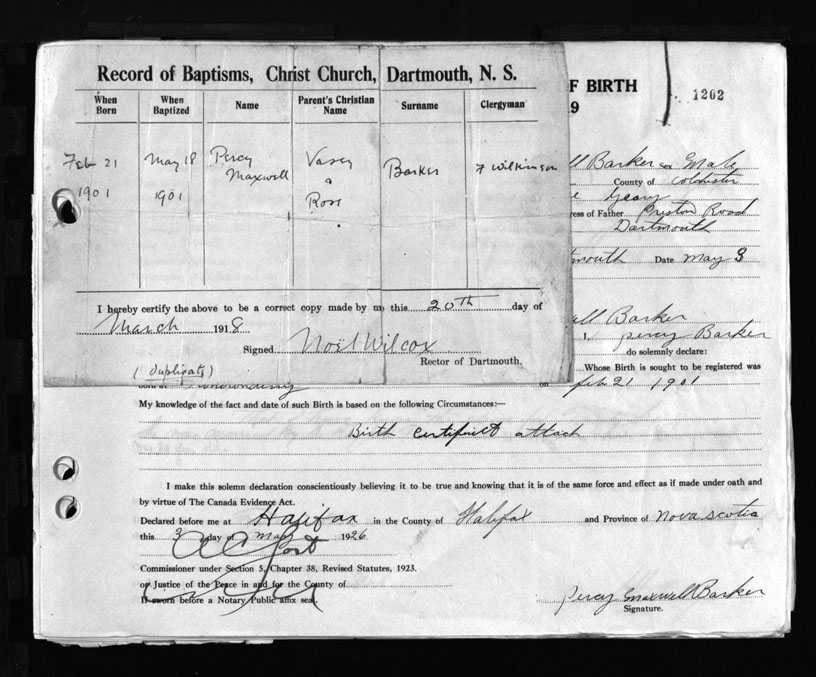 Record of Baptisms, Christ Church, Dartmouth, N. S.
When Born
When Baptized
Name
Parent's Christian Name
Surname
Clergyman
Feb 21
1901
May 18
1901
Percy
Maxwell
Vasey
&
Rose
Barker
F Wilkinson
I hereby certify the above to be a correct copy made by me this 20TH day of
March 1918
Signed Noel Wilcox
Rector of Dartmouth.
(Duplicate)
F BIRTH
9
1202
ll Barker Male
County of Colchester
ress of Father Preston Road
Dartmouth
mouth Date May 3
ll Barker
I, Percy Barker
do solemnly declare:
Whose Birth is sought to be registered was
on Feb 21 1901
My knowledge of the fact and date of such Birth is based on the following Circumstances:—
Birth certificet attach
I make this solemn declaration conscientiously believing it to be true and knowing that it is of the same force and effect as if made under oath and
by virtue of The Canada Evidence Act.
Declared before me at Halifax in the County of Halifax and Province of Nova Scotia
this 3 day of May 1926
Commissioner under Section 5, Chapter 38, Revised Statutes, 1923.
or Justice of the Peace in and for the County of
If sworn before a Notary Public affix seal.
Percy Maxwell Barker
Signature.